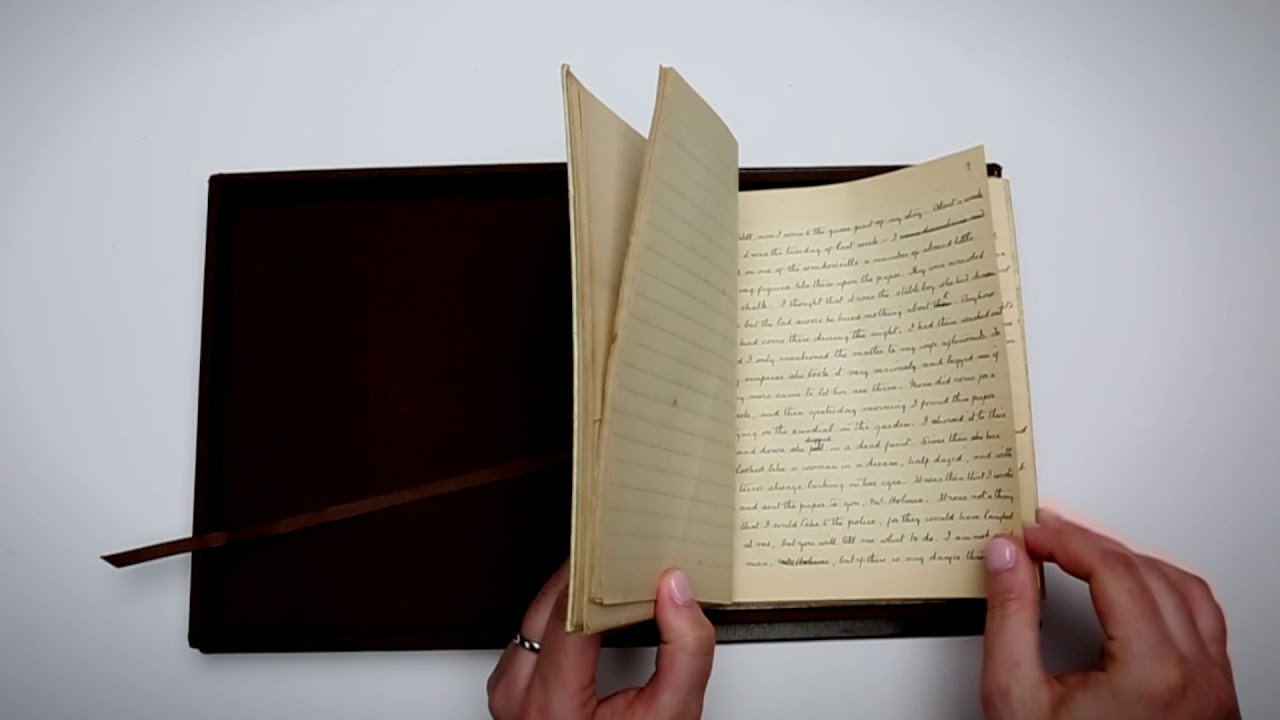 7
Well, now I come to the queer part of my story. About a week
it was the Tuesday of last week – I
on one of the windowsills a number of absurd little
figures like these upon the paper. They were scrawled
chalk. I thought that it was the stable boy who had drawn
but the lad swore he knew nothing about it. Anyhow
had come there during the night. I had them washed out
I only mentioned the matter to my wife afterwards. To
surprise she took it very seriously and begged me if
any more came to let her see them. None did come for a
week, and then yesterday morning I found this paper
lying on the sundial in the garden. I showed it to
dropped
and down she in a dead faint. Since then she has
looked like a woman in a dream, half dazed, and with
terror always lurking in her eyes. It was then that I wrote
and sent the paper to you, Mr Holmes. It was not a thing
that I could take to the police, for they would have laughed
at me, but you will tell me what to do. I am not
man, but if there is any danger